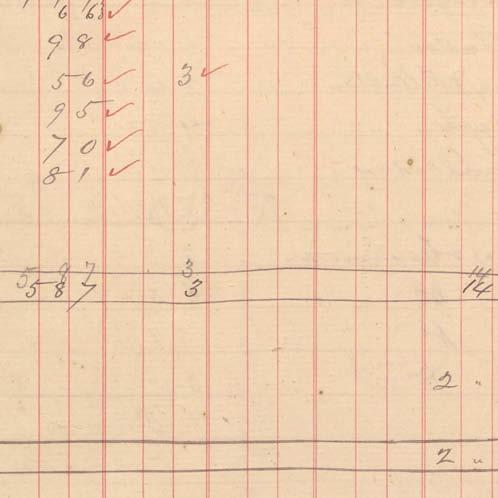 98 ✓
56 ✓ 3 ✓
95 ✓
70 ✓
81 ✓
587 3 14
587 3 14
2 "
2 "